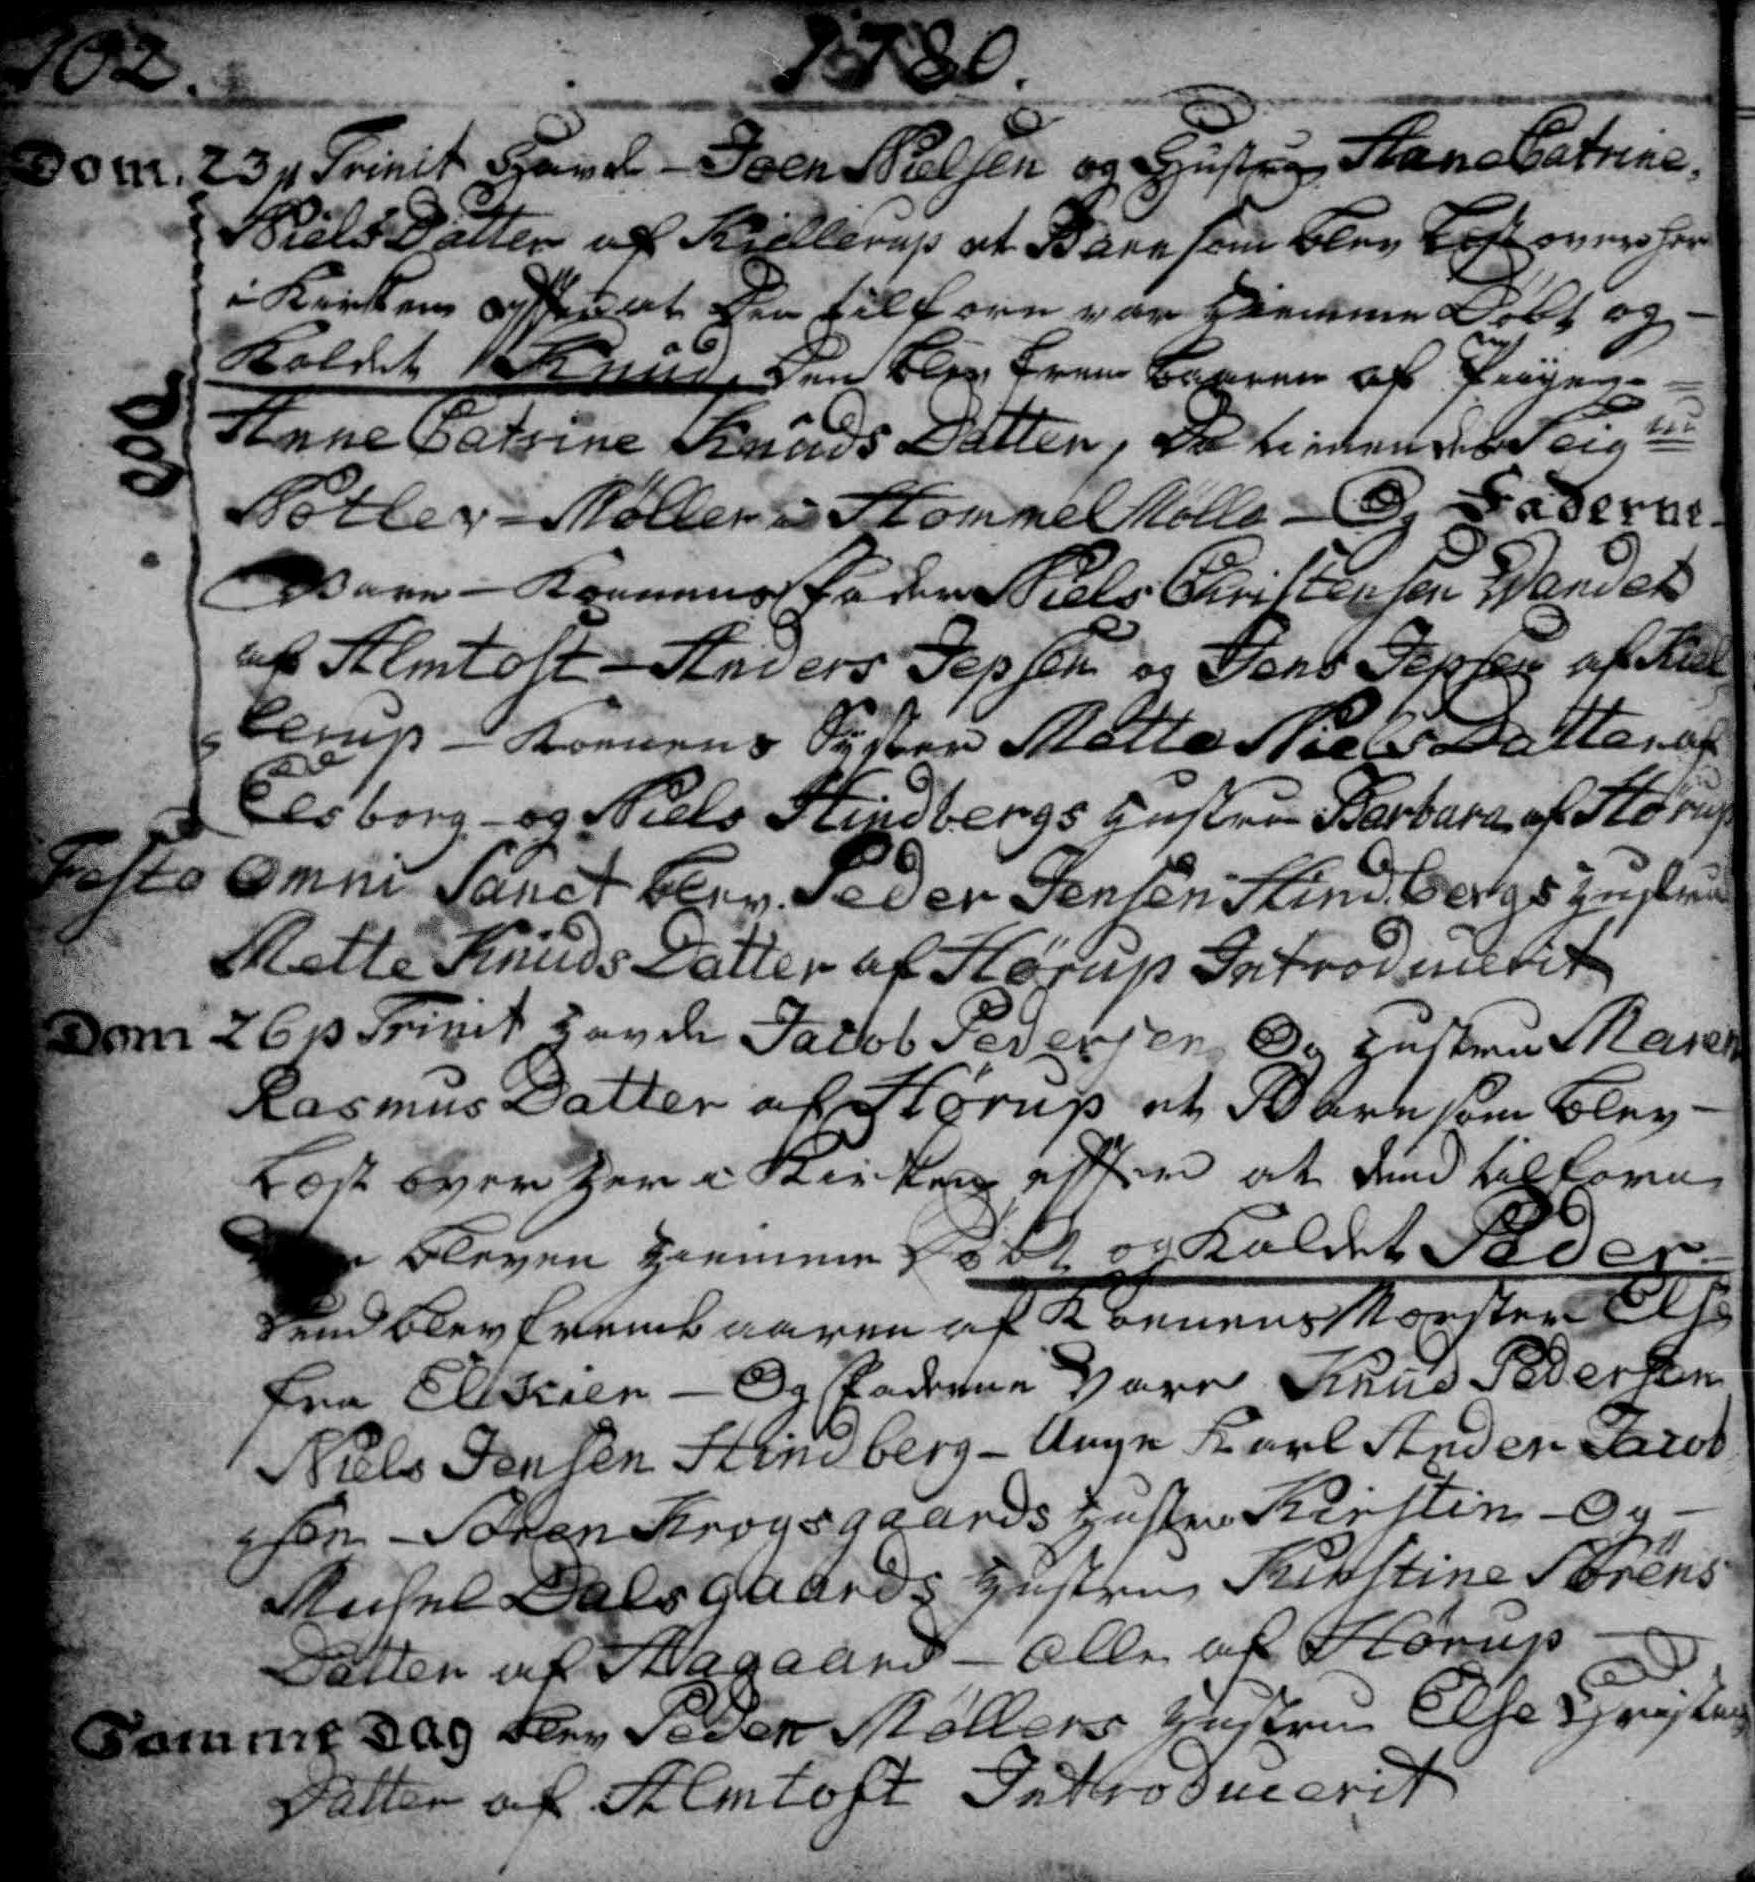 102. 1780.
Dom. 23 p Trinit Havde - Joen Nielsen og Hustru Ane Catrine,
Niels Datter af Kiellerup et Barn som blev læst over her
i Kirken efter at den tilforn var Hiemme Döbt og -
Kaldet Knud, den blev frem baaren af Pigen
Anne Catrine Knuds Datter, Seig
- Möller i Hommel Mölle - Og Faderne
Vare - Konens Fader Niels Christensen Wandet
af Almtoft - Anders Jepsen og Jens Jepsen af Kiel
lerup - Konens Syster Mette Niels Datter af
Elsborg - og Niels Hindbergs Hustru Barbara af Hörup
Festo Omni Sanct blev Peder Jensen Hindbergs Hustru
Mette Knuds Datter af Hörup Introducerit
Dom 26 p Trinit Havde Jacob Pedersen Og Hustru Maren
Rasmus Datter af Hörup et Barn som blev -
læst over her i Kirken efter at dend tilforn
bleven Hiemme Döbt og Kaldet Peder -
dend blev frembaaren af Konens Moster Else
fra Elkier - Og Faderne Vare Knud Pedersen
Niels Jensen Hindberg - Unge Karl Ander Jacob
sen - Sören Krogsgaards Hustru Kirstin - Og -
Michel Dalsgaards Hustru Kirstine Sörens
Datter af Aagaard - alle af Hörup
Samme Dag blev Peder Möllers Hustru Else
Datter af Almtoft Introducerit